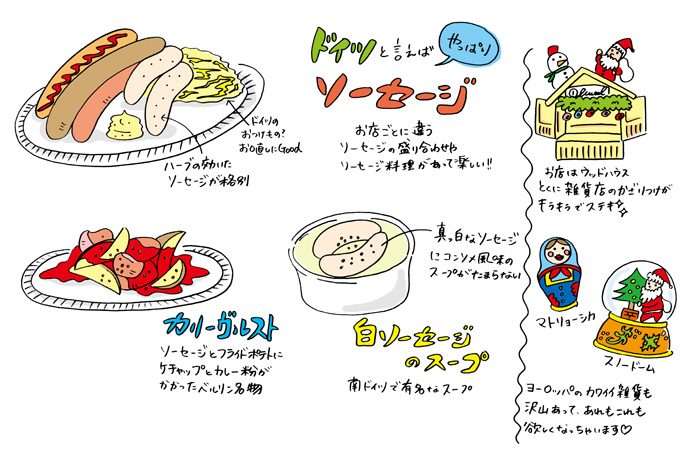 ドイツと言えば
やっぱり
ソーセージ
お店ごとに違う
ソーセージの盛り合わせや
ソーセージ料理があって楽しい!!
ドイツの
おつけもの?
お口直しにGood
ハーブの効いた
ソーセージが格別
カリーヴルスト
ソーセージとフライドポテトに
ケチャップとカレー粉が
かかったベルリン名物
真っ白なソーセージ
にコンソメ風味の
スープがたまらない
白ソーセージ
のスープ
南ドイツで有名なスープ
お店はウッドハウス
とくに雑貨店のかざりつけが
キラキラでステキ
マトリョーシカ
スノードーム
ヨーロッパのカワイイ雑貨も
沢山あって、あれもこれも
欲しくなっちゃいます♡